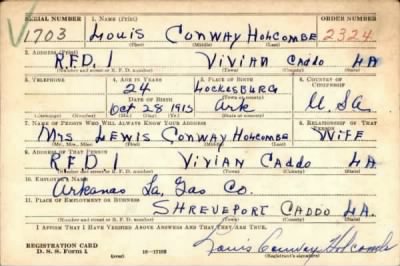 SERIAL NUMBER 1. NAME (Print) ORDER NUMBER
1703 Louis Conway Holcombe 2324
(First) (Middle) (Last)
2. ADDRESS (Print)
R.F.D. 1 Vivian Caddo LA
(Number and street or R. F. D. number) (Town) (County) (State)
3. TELEPHONE 4. AGE IN YEARS 5. PLACE OF BIRTH 6. COUNTRY OF CITIZENSHIP
24 Lockesburg
DATE OF BIRTH (Town or county)
Oct 28 1915 Ark U.S.A
(Mo.) (Day) (Yr.) (State or country)
7. NAME OF PERSON WHO WILL ALWAYS KNOW YOUR ADDRESS 8. RELATIONSHIP OF THAT PERSON
Mrs Lewis Conway Holcombe Wife
(Mr., Mrs., Miss) (First) (Middle) (Last)
9. ADDRESS OF THAT PERSON
RFD 1 Vivian Caddo LA.
(Number and street or R. F. D. number) (Town) (County) (State)
10. EMPLOYER'S NAME
Arkansas La, Gas Co.
11. PLACE OF EMPLOYMENT OR BUSINESS
SHREVEPORT CADDO LA.
(Number and street or R. F. D. number) (Town) (County) (State)
I AFFIRM THAT I HAVE VERIFIED ABOVE ANSWERS AND THAT THEY ARE TRUE.
REGISTRATION CARD
D. S. S. Form 1 16—17105 Louis Conway Holcombe
(Registrant's signature)